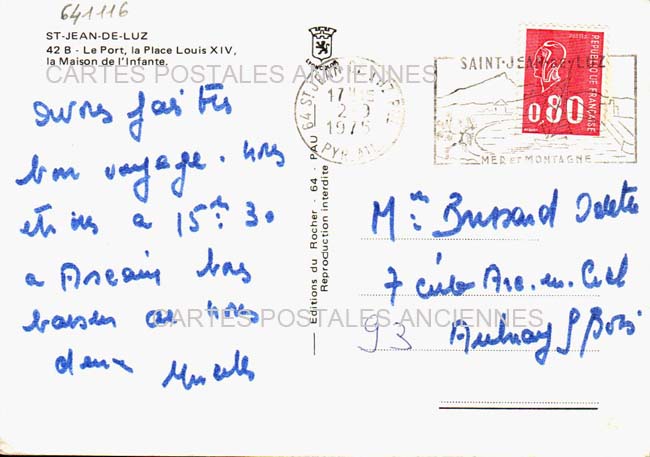 641116
ST-JEAN-DE-LUZ
42 B - Le Port, la Place Louis XIV,
la Maison de l'Infante.
CARTES POSTALES ANCIENNES
avons fait très
bon voyage. nous
étions à 15h 30
à Ascain bons
baisers de nous
deux
64 ST-JEAN-DE-LUZ
17H15
2-9
1975
PYR. ATL.
SAINT-JEAN-DE-LUZ
MER et MONTAGNE
REPUBLIQUE FRANÇAISE
POSTES
0,80
Editions du Rocher - 64 - PAU
Reproduction interdite
Mme Bussard Odette
7 Arc.en.Ciel
93 Aulnay S/Bois
CARTES POSTALES ANCIENNES